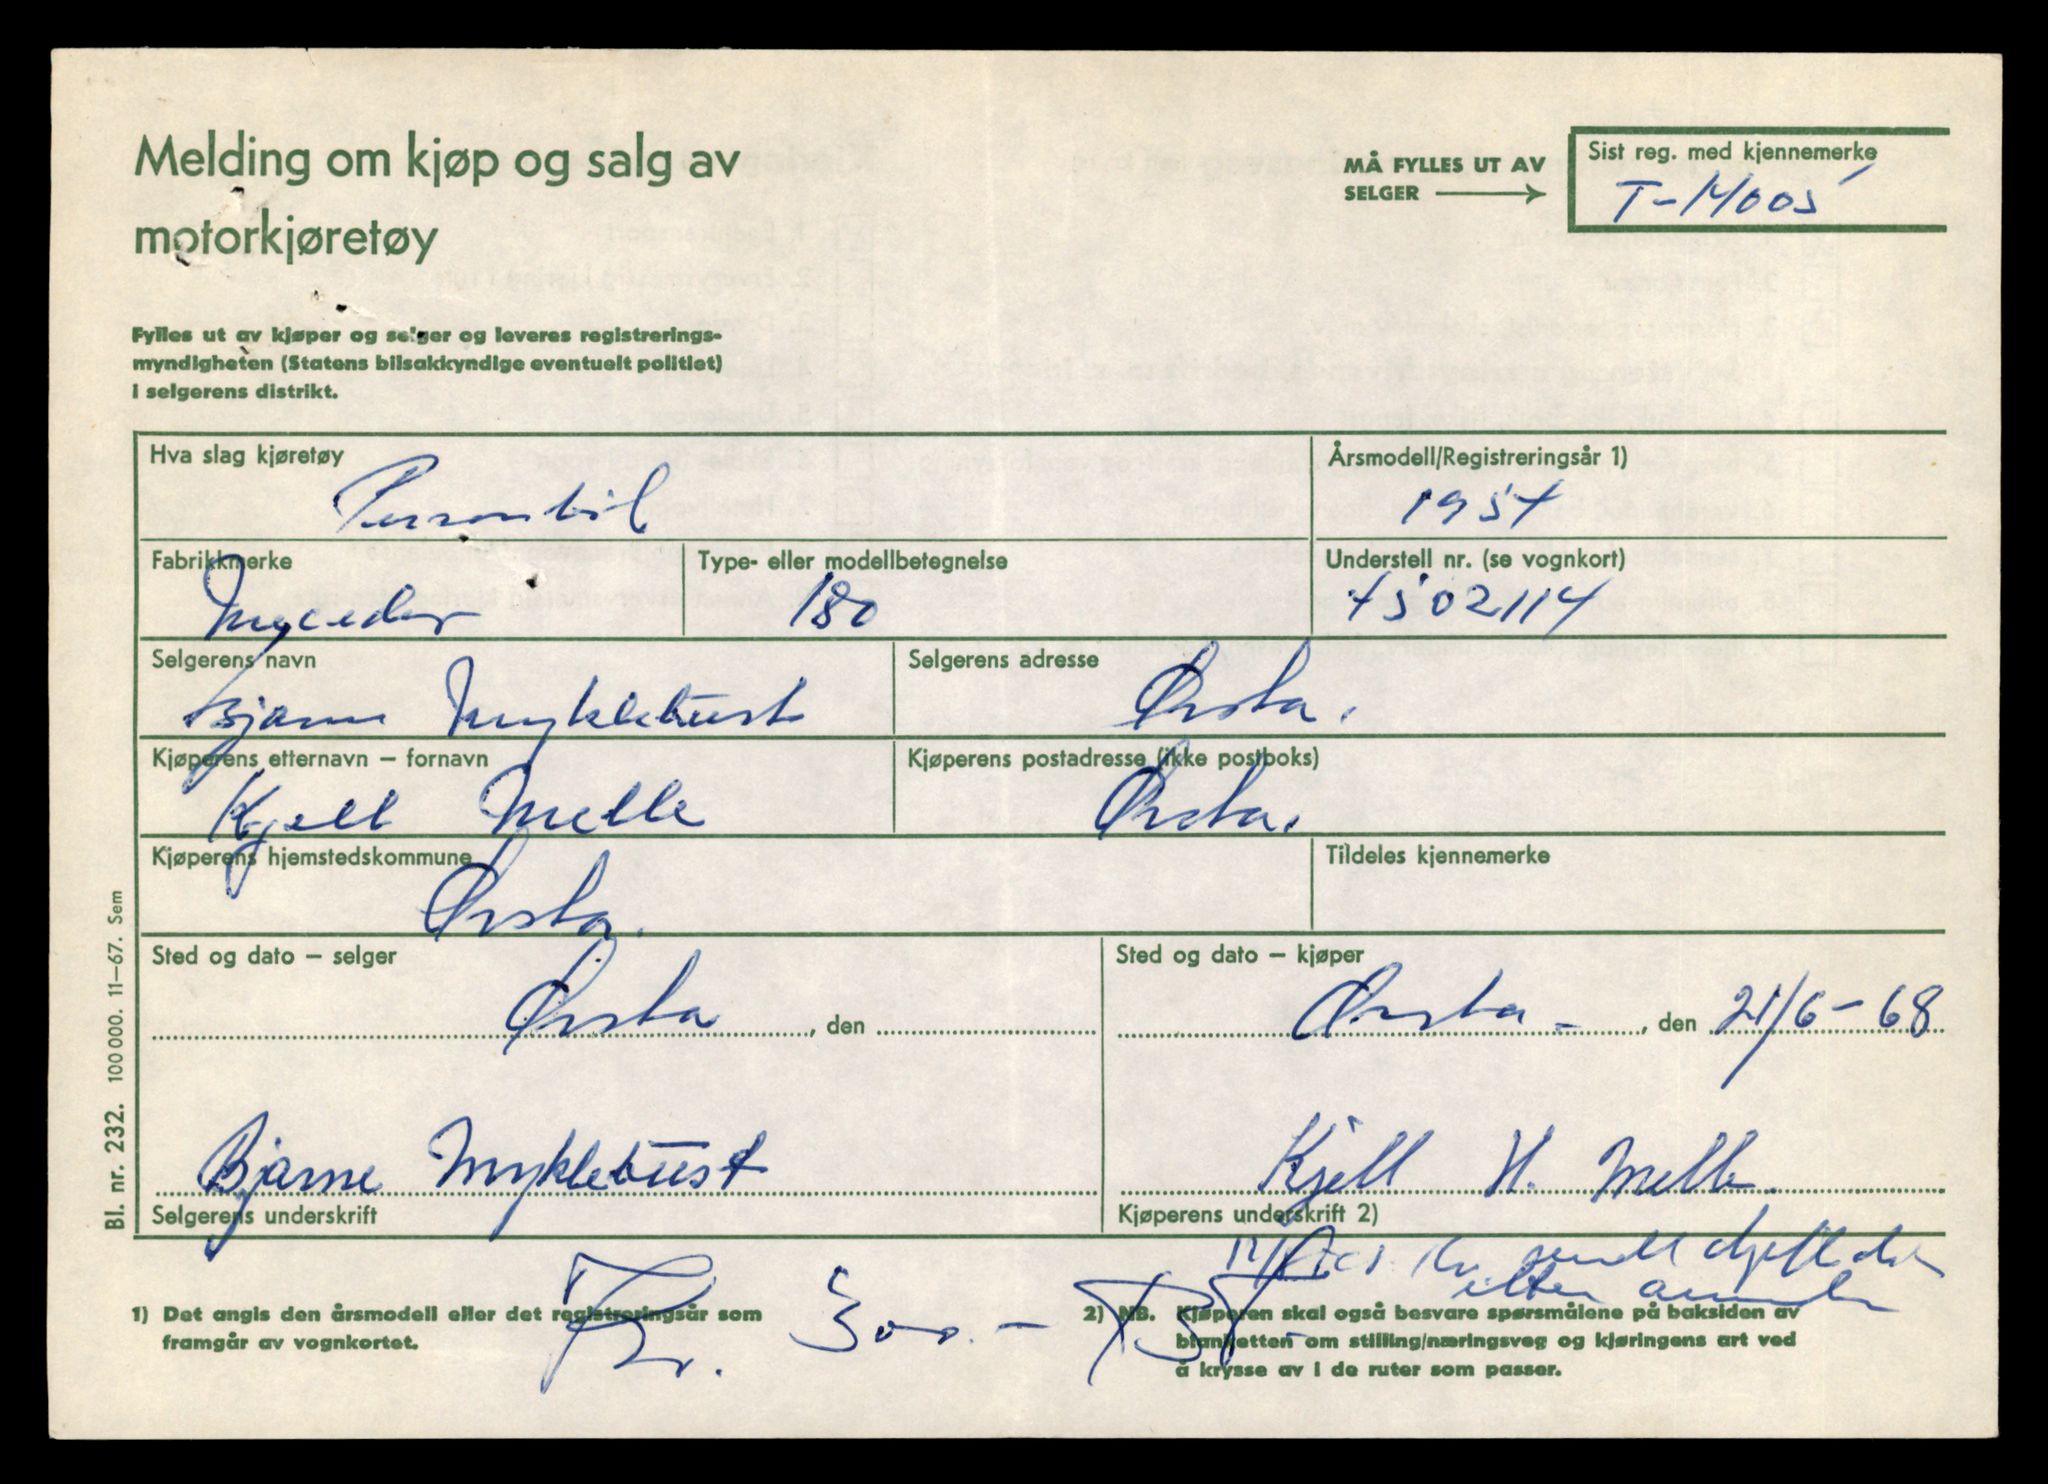 Melding om kjøp og salg av
motorkjøretøy
MÅ FYLLES UT AV
SELGER
Sist reg. med kjennemerke
T-14005
Fylles ut av kjøper og selger og leveres registrerings-
myndigheten (Statens bilsakkyndige eventuelt politiet)
i selgerens distrikt.
Hva slag kjøretøy
Personbil
Årsmodell/Registreringsår 1)
1954
Fabrikkmerke
Type- eller modellbetegnelse
180
Understell nr. (se vognkort)
4502114
Selgerens navn
Bjarne Myklebust
Selgerens adresse
Ørsta.
Kjøperens etternavn – fornavn
Kjell Melle
Kjøperens postadresse (ikke postboks)
Ørsta.
Kjøperens hjemstedskommune
Ørsta.
Tildeles kjennemerke
Sted og dato – selger
Ørsta, den
Sted og dato – kjøper
Ørsta-, den 21/6-68
Bjarne Myklebust
Selgerens underskrift
Kjell H. Melle.
Kjøperens underskrift 2)
Kr. 300.-
1) Det angis den årsmodell eller det registreringsår som
framgår av vognkortet.
2) NB. Kjøperen skal også besvare spørsmålene på baksiden av
blanketten om stilling/næringsveg og kjøringens art ved
å krysse av i de ruter som passer.
Bl. nr. 232. 100 000. 11–67. Sem